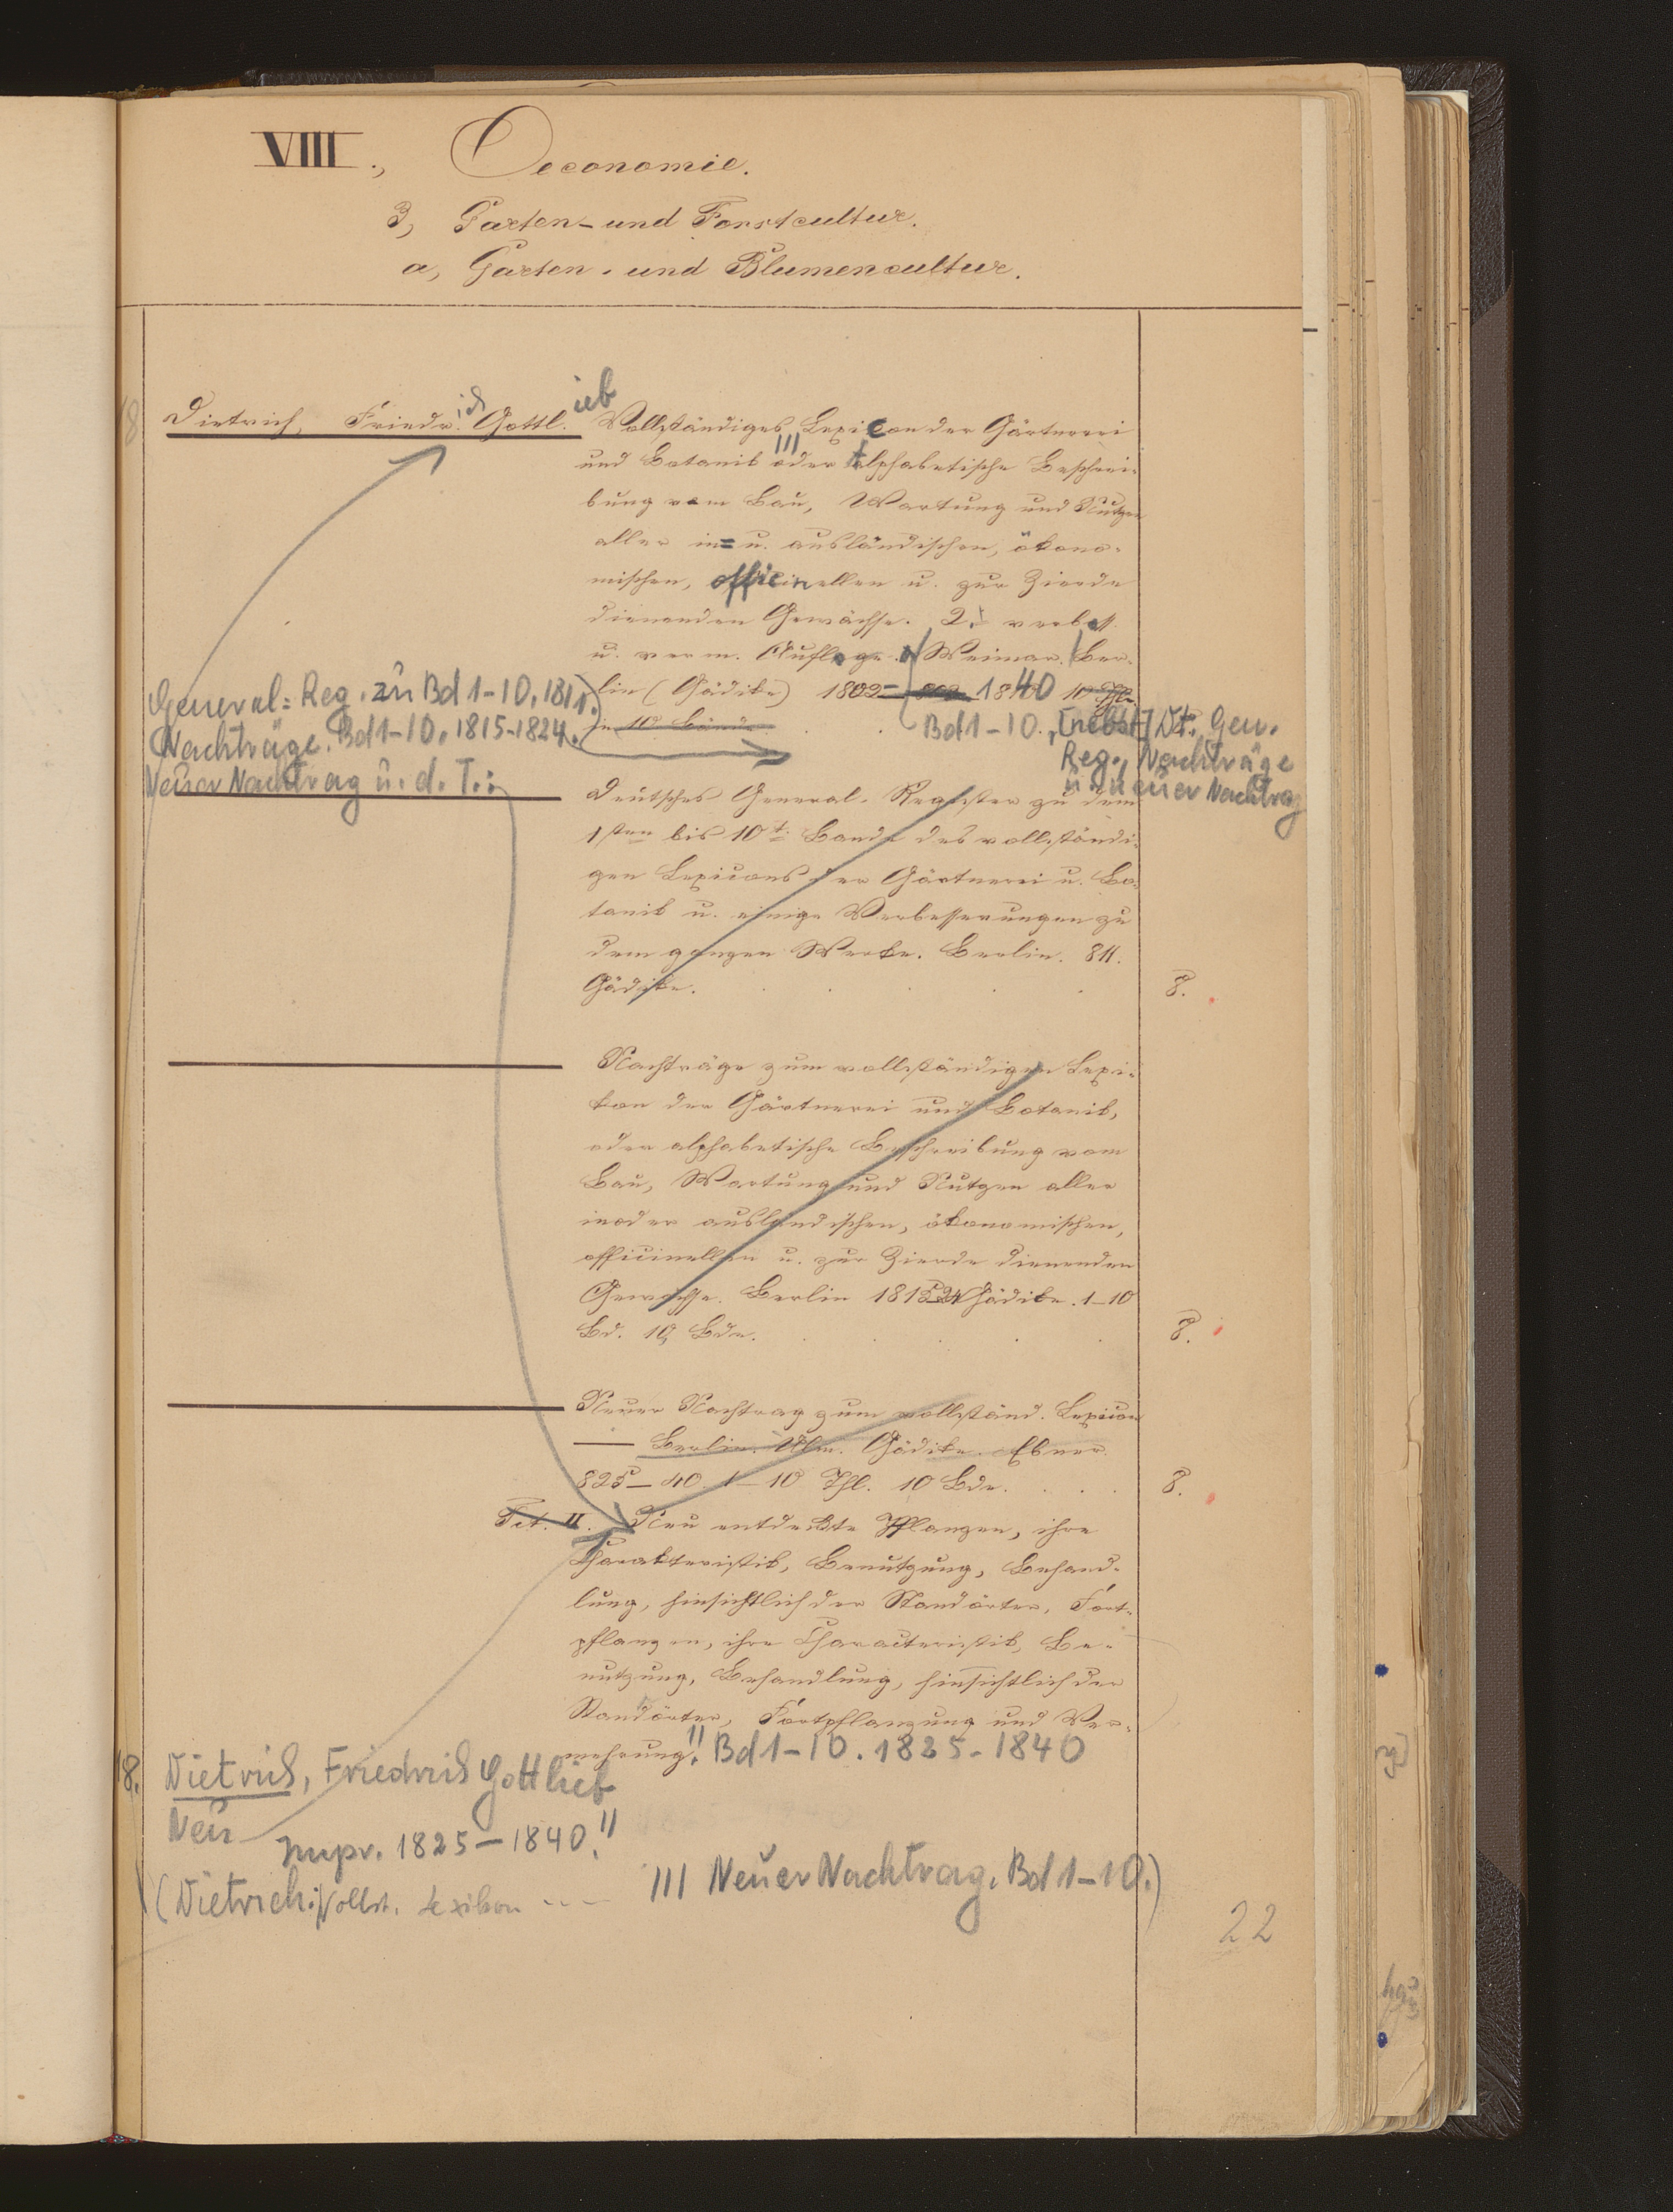 VIII., Oeconomie.
3, Garten- und Forstcultur.
a, Garten- und Blumencultur.
8 Dietrich, Friedr. Gottl. ich ieb Vollständiges Lexicon der Gärtnerei
und Botanik oder Alphabetische Beschrei-
bung vom Bau, Wartung und Nutzen
aller in= u. ausländischen, ökono-
mischen, officinellen u. zur Zierde
dienenden Gewächse. 2. verbess.
u. verm. Auflage. Weimar. Ber-
lin (Gädike) 1802- 1840 10 Thle.
in 10 Bände
General=Reg. zu Bd 1-10, 1811.
Nachträge. Bd 1-10, 1815-1824.
Neuer Nachtrag u. d. T.:
Bd 1-10., [nebst] Dt. Gen.
Reg., Nachträge
u. Neuer Nachtrag
Deutsches General-Register zu dem
1sten bis 10t. Bande des vollständi-
gen Lexicons der Gärtnerei u. Bo-
tanik u. einige Verbesserungen zu
dem ganzen Werke. Berlin. 811.
Gädike. 8.
Nachträge zum vollständigen Lexi-
kon der Gärtnerei und Botanik,
oder alphabetische Beschreibung vom
Bau, Wartung und Nutzen aller
in oder ausländischen, ökonomischen,
officinellen u. zur Zierde dienenden
Gewächse. Berlin 1815-24 Gädike. 1-10
Bd. 10 Bde. 8.
Neuer Nachtrag zum vollständ. Lexicon
— Berlin. Ulm. Gädike. Ebner.
825-40. 1-10 Thl. 10 Bde. 8.
Tit. II. Neu entdeckte Pflanzen, ihre
Charakteristik, Benutzung, Behand-
lung, hinsichtlich der Standörter, Fort-
pflanzen, ihre Characteristik, Be-
nutzung, Behandlung, hinsichtlich der
Standörter, Fortpflanzung und Ver-
mehrung. Bd 1-10. 1825-1840
8. Dietrich, Friedrich Gottlieb
Neu
1825-1840.
(Dietrich: Vollst. Lexikon --- III Neuer Nachtrag. Bd 1-10.)
22